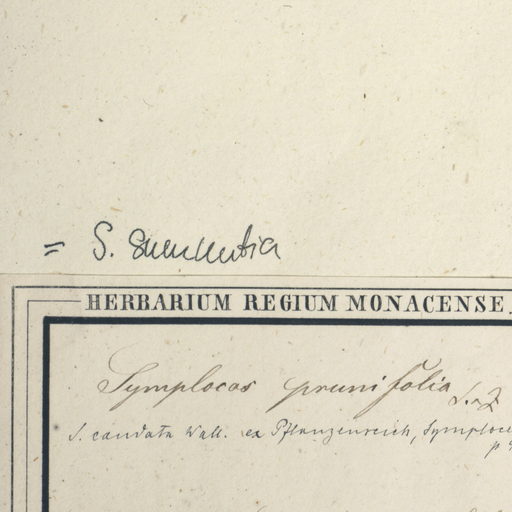 = S. sumuntia
HERBARIUM REGIUM MONACENSE.
Symplocos prunifolia S. Z.
S. caudata Wall. ex Pflanzenreich, Symploc
p